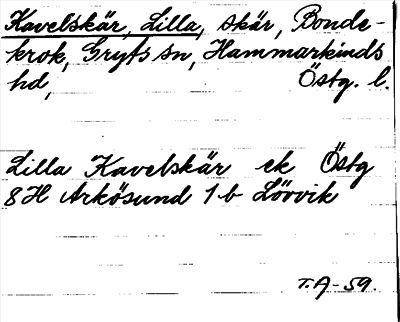 Kavelskär, Lilla, skär, Bonde-
krok, Gryts sn, Hammarkinds
hd, Östg. l.
Lilla Kavelskär ek Östg
8H Arkösund 1b Lörvik
T.A-59.